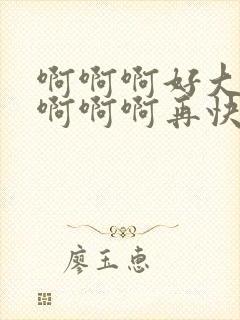 啊啊啊好大
啊啊啊再快
廖玉惠